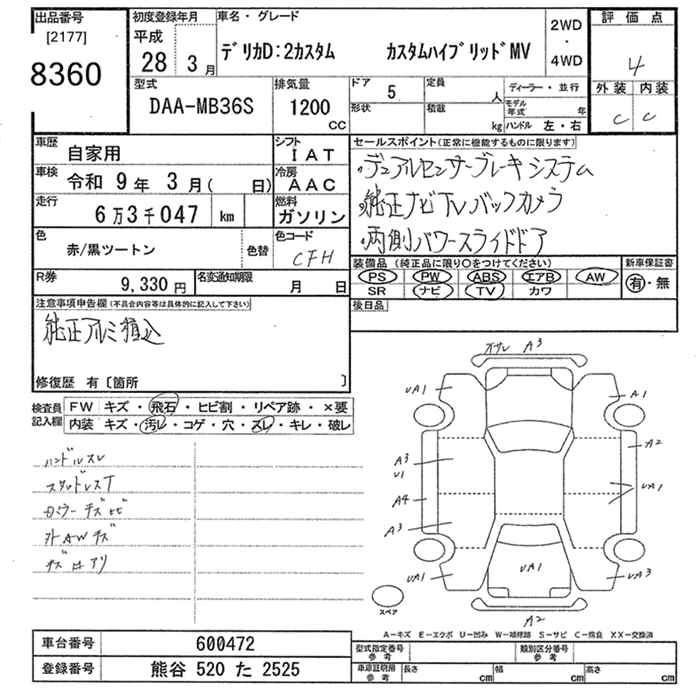 出品番号
[2177]
8360
初度登録年月
平成
28年 3月
車名・グレード
デリカD:2カスタム カスタムハイブリッドMV
2WD
・
4WD
評価点
4
外装 内装
C C
型式
DAA-MB36S
排気量
1200
CC
ドア 5
定員 人
形状
積載 kg
ディーラー・並行
モデル年式 年
ハンドル 左・右
車歴 自家用
シフト IAT
車検 令和 9年 3月( 日)
冷房 AAC
走行 6万3千047 km
燃料 ガソリン
色 赤/黒ツートン 色替
色コード CFH
R券 9,330円
名変通知期限 月 日
セールスポイント(正常に機能するものに限ります)
・デュアルセンサーブレーキシステム
・純正ナビTVバックカメラ
・両側パワースライドドア
装備品(純正品に限り○をつけてください)
PS PW ABS エアB AW
SR ナビ TV カワ
新車保証書
有・無
後日品
注意事項申告欄(不具合内容等は具体的に記入して下さい)
純正アルミ積込
修復歴 有〔箇所 〕
検査員記入欄
FW キズ・飛石・ヒビ割・リペア跡・×要
内装 キズ・汚レ・コゲ・穴・スレ・キレ・破レ
ハンドルスレ
スタッドレスT
外AWキズ
キズ凹アリ
ガラ A3
UA1
A1
A3
U1
A2
A4
UA1
A3
UA1
UA1
UA3
A2
スペア
A-キズ E-エクボ U-凹み W-補修跡 S-サビ C-腐食 XX-交換済
車台番号 600472
登録番号 熊谷 520 た 2525
型式指定番号
参考
類別区分番号
参考
車庫証明用
参考
長さ cm
幅 cm
高さ cm